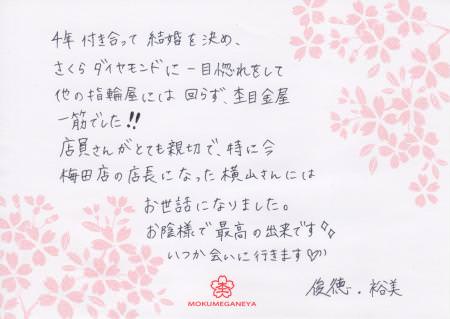 4年 付き合って 結婚を決め、
さくらダイヤモンドに 一目惚れをして
他の指輪屋には 回らず、杢目金屋
一筋でした!!
店員さんがとても親切で、特に今
梅田店の店長になった横山さんには
お世話になりました。
お陰様で最高の出来です✨
いつか会いに行きます♡
俊徳・裕美
杢
MOKUMEGANEYA